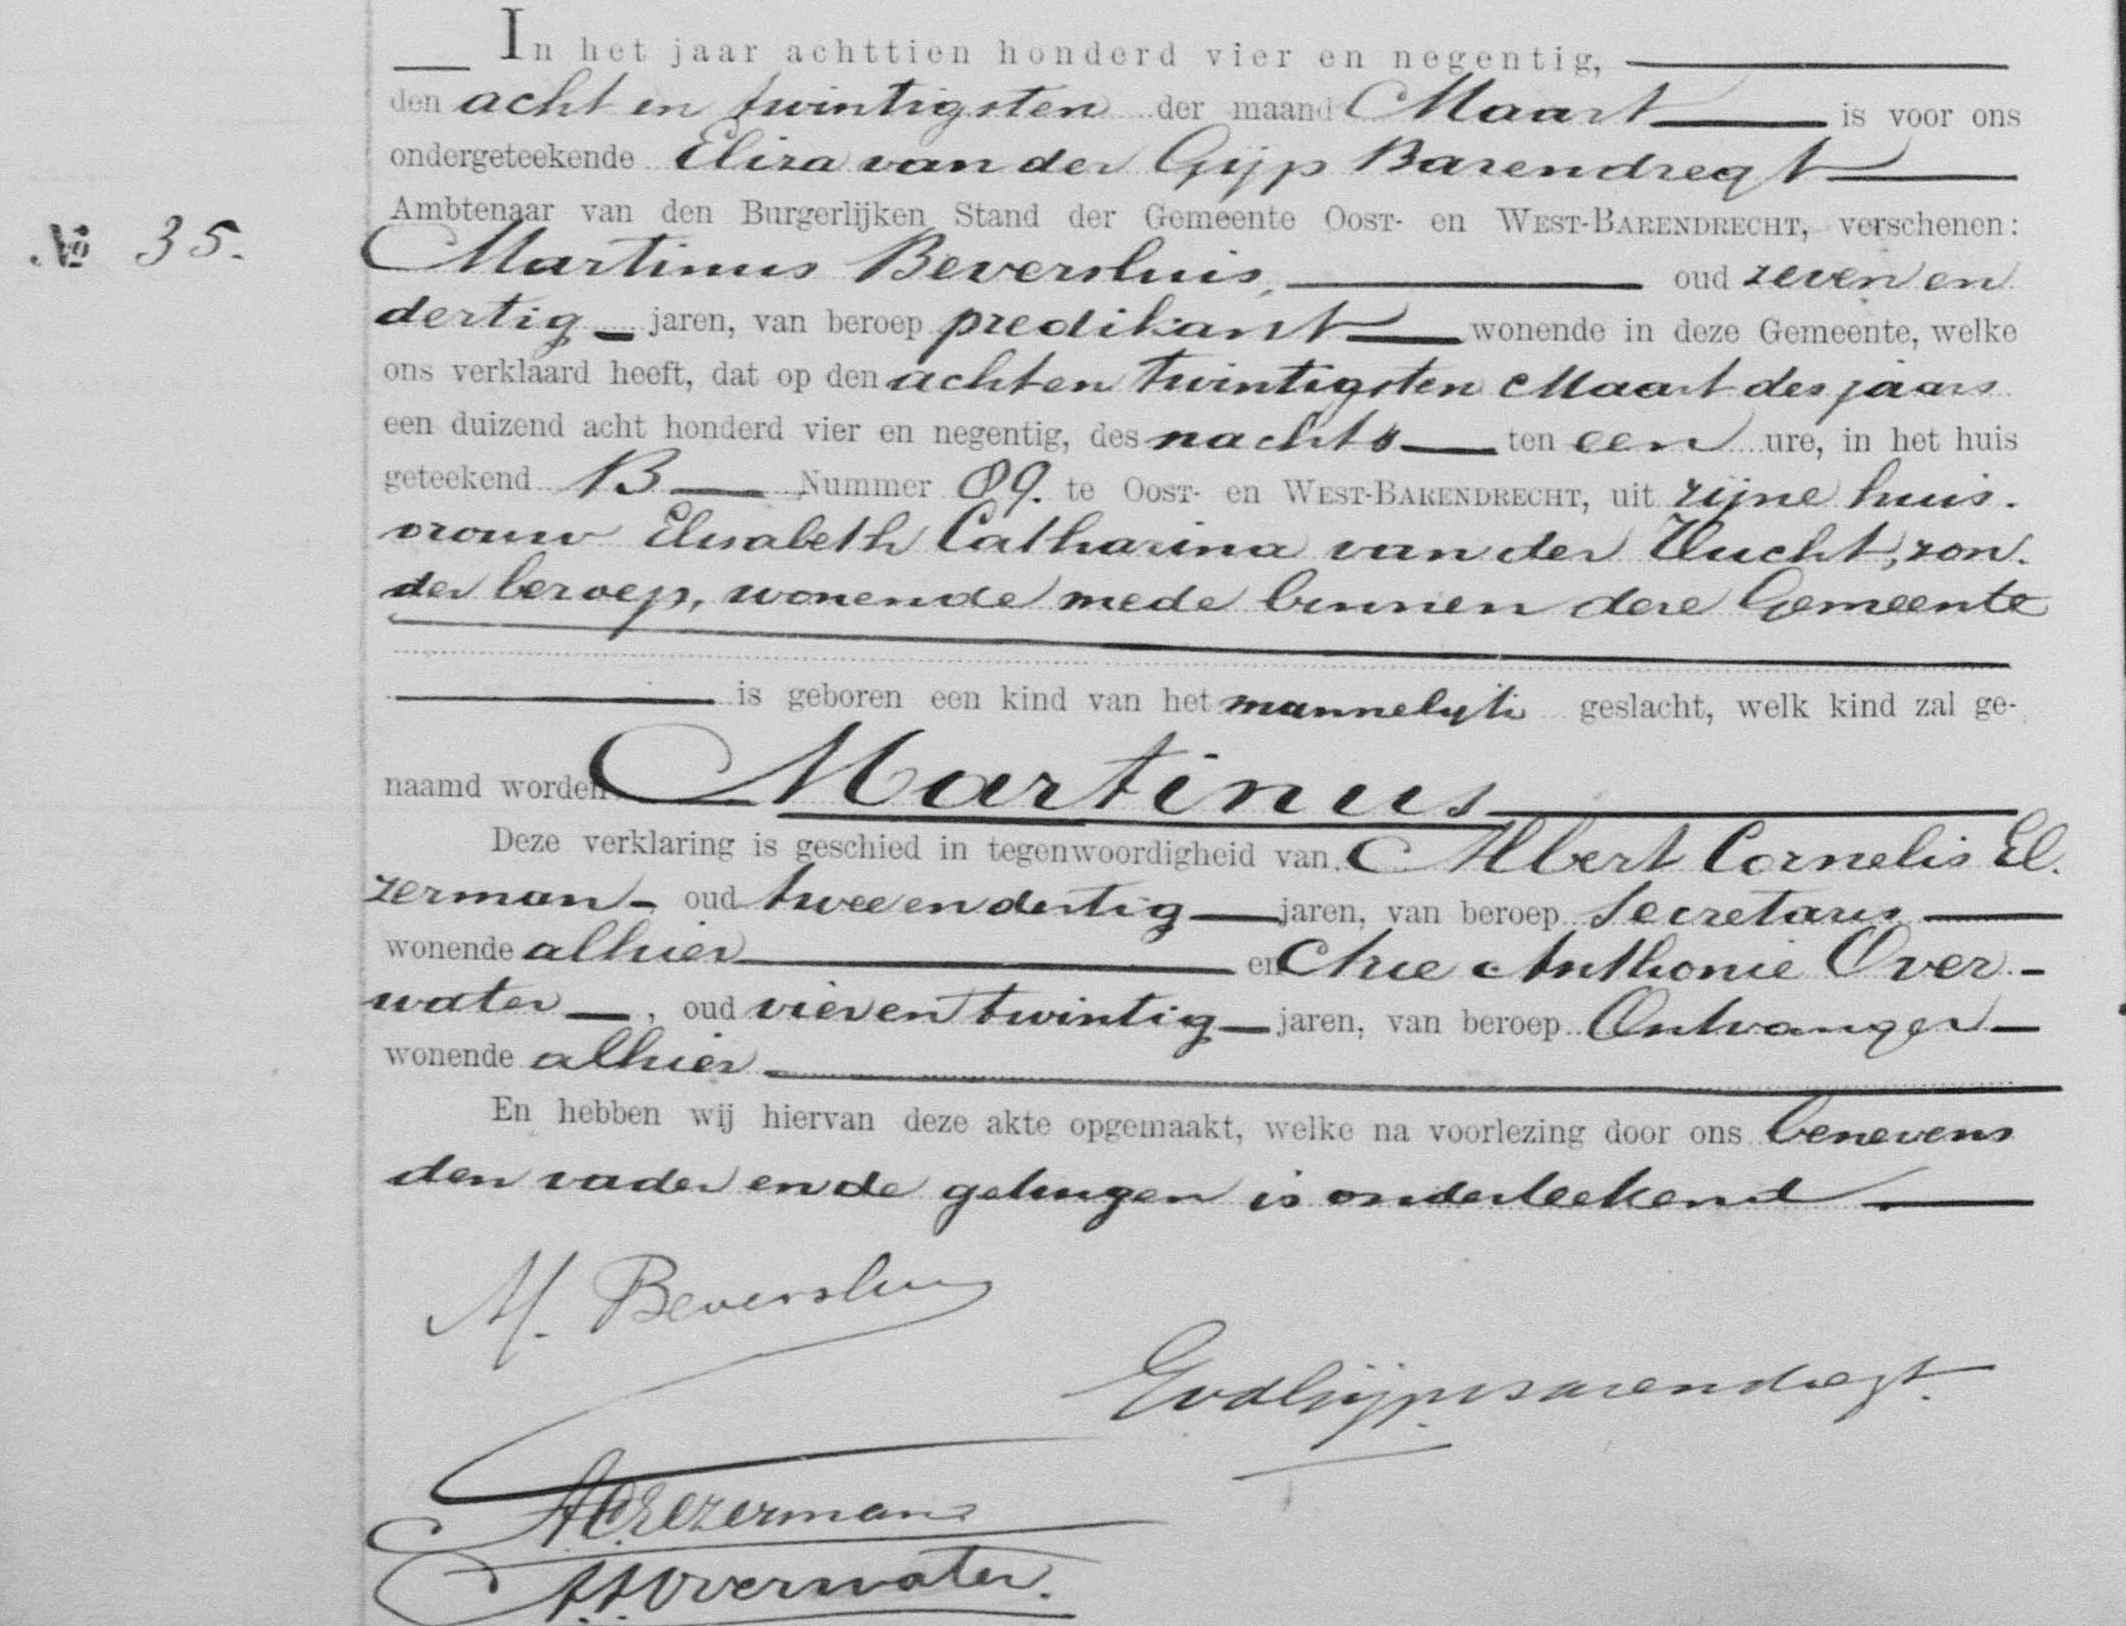 In het jaar achttien honderd vier en negentig,
den acht en twintigsten der maand Maart is voor ons
ondergeteekende Eliza van der Gijp Barendregt
Ambtenaar van den Burgerlijken Stand der Gemeente Oost- en West-Barendrecht, verschenen:
№ 35.
Martinus Beversluis, oud zeven en
dertig jaren, van beroep predikant wonende in deze Gemeente, welke
ons verklaard heeft, dat op den acht en twintigsten Maart des jaars
een duizend acht honderd vier en negentig, des nachts ten een ure, in het huis
geteekend B Nummer 89. te Oost- en West-Barendrecht, uit zijne huis-
vrouw Elisabeth Catharina van der Vlucht, zon-
der beroep, wonende mede binnen deze Gemeente
is geboren een kind van het mannelijk geslacht, welk kind zal ge-
naamd worden Martinus
Deze verklaring is geschied in tegenwoordigheid van Albert Cornelis El-
zerman, oud twee en dertig jaren, van beroep Secretaris
wonende alhier en Arie Anthonie Over-
water, oud vier en twintig jaren, van beroep Ontvanger
wonende alhier
En hebben wij hiervan deze akte opgemaakt, welke na voorlezing door ons benevens
den vader en de getuigen is onderteekend
M. Beversluis
EvdGijpBarendregt.
ACElzerman
AAOverwater.